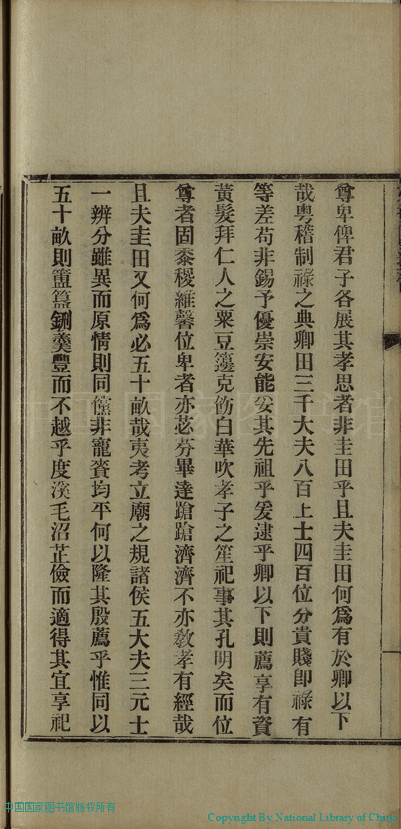 尊卑俾君子各展其孝思者非圭田乎且夫圭田何爲有於卿以下
哉粤稽制祿之典卿田三千大夫八百上士四百位分貴賤卽祿有
等差苟非錫予優崇安能妥其先祖乎爰逮乎卿以下則薦享有資
黃髮拜仁人之粟豆籩克飭白華吹孝子之笙祀事其孔明矣而位
尊者固黍稷維馨位卑者亦苾芬畢達蹌蹌濟濟不亦敎孝有經哉
且夫圭田又何爲必五十畝哉夷考立廟之規諸侯五大夫三元士
一辨分雖異而原情則同儻非寵賚均平何以隆其殷薦乎惟同以
五十畝則簠簋鉶羹豐而不越乎度溪毛沼芷儉而適得其宜享祀
中国国家图书馆版权所有
Copyright By National Library of China